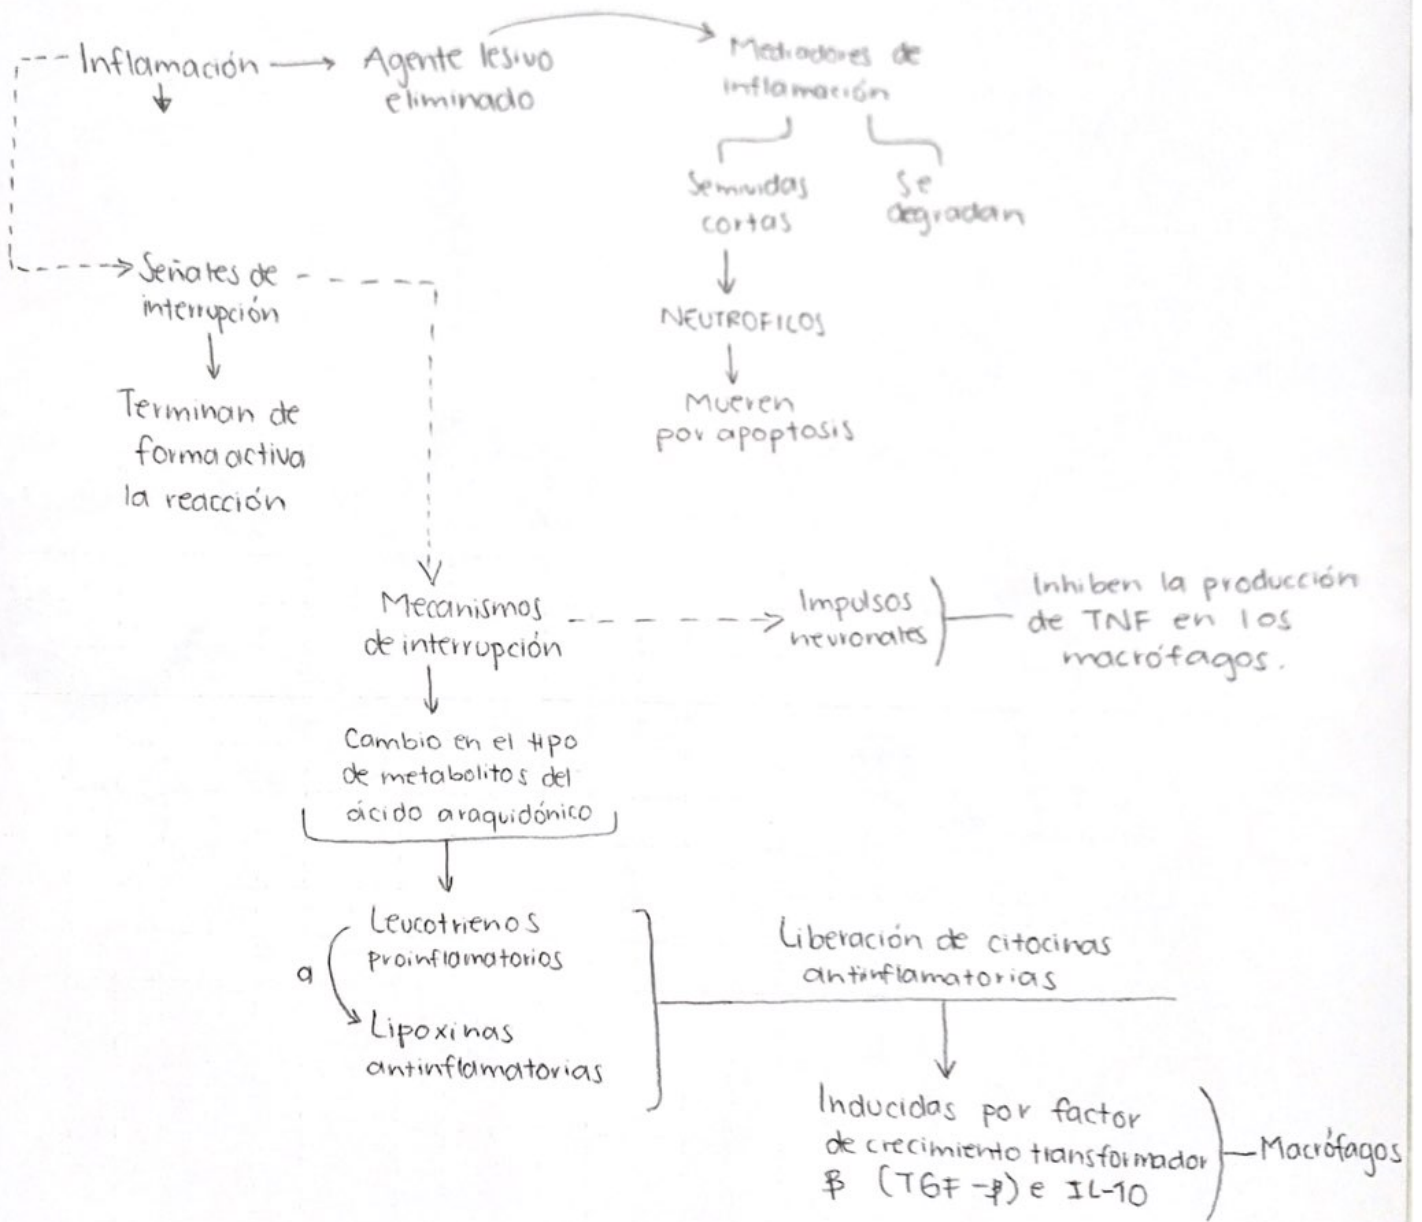 Inflamación
Agente lesivo
eliminado
Mediadores de
inflamación
Semividas
cortas
Se
degradan
NEUTROFILOS
Mueren
por apoptosis
Señales de
interrupción
Terminan de
forma activa
la reacción
Mecanismos
de interrupción
Impulsos
neuronales
Inhiben la producción
de TNF en los
macrófagos.
Cambio en el tipo
de metabolitos del
ácido araquidónico
Leucotrienos
proinflamatorios
a
Lipoxinas
antinflamatorias
Liberación de citocinas
antinflamatorias
Inducidas por factor
de crecimiento transformador
β (TGF-β) e IL-10
Macrófagos